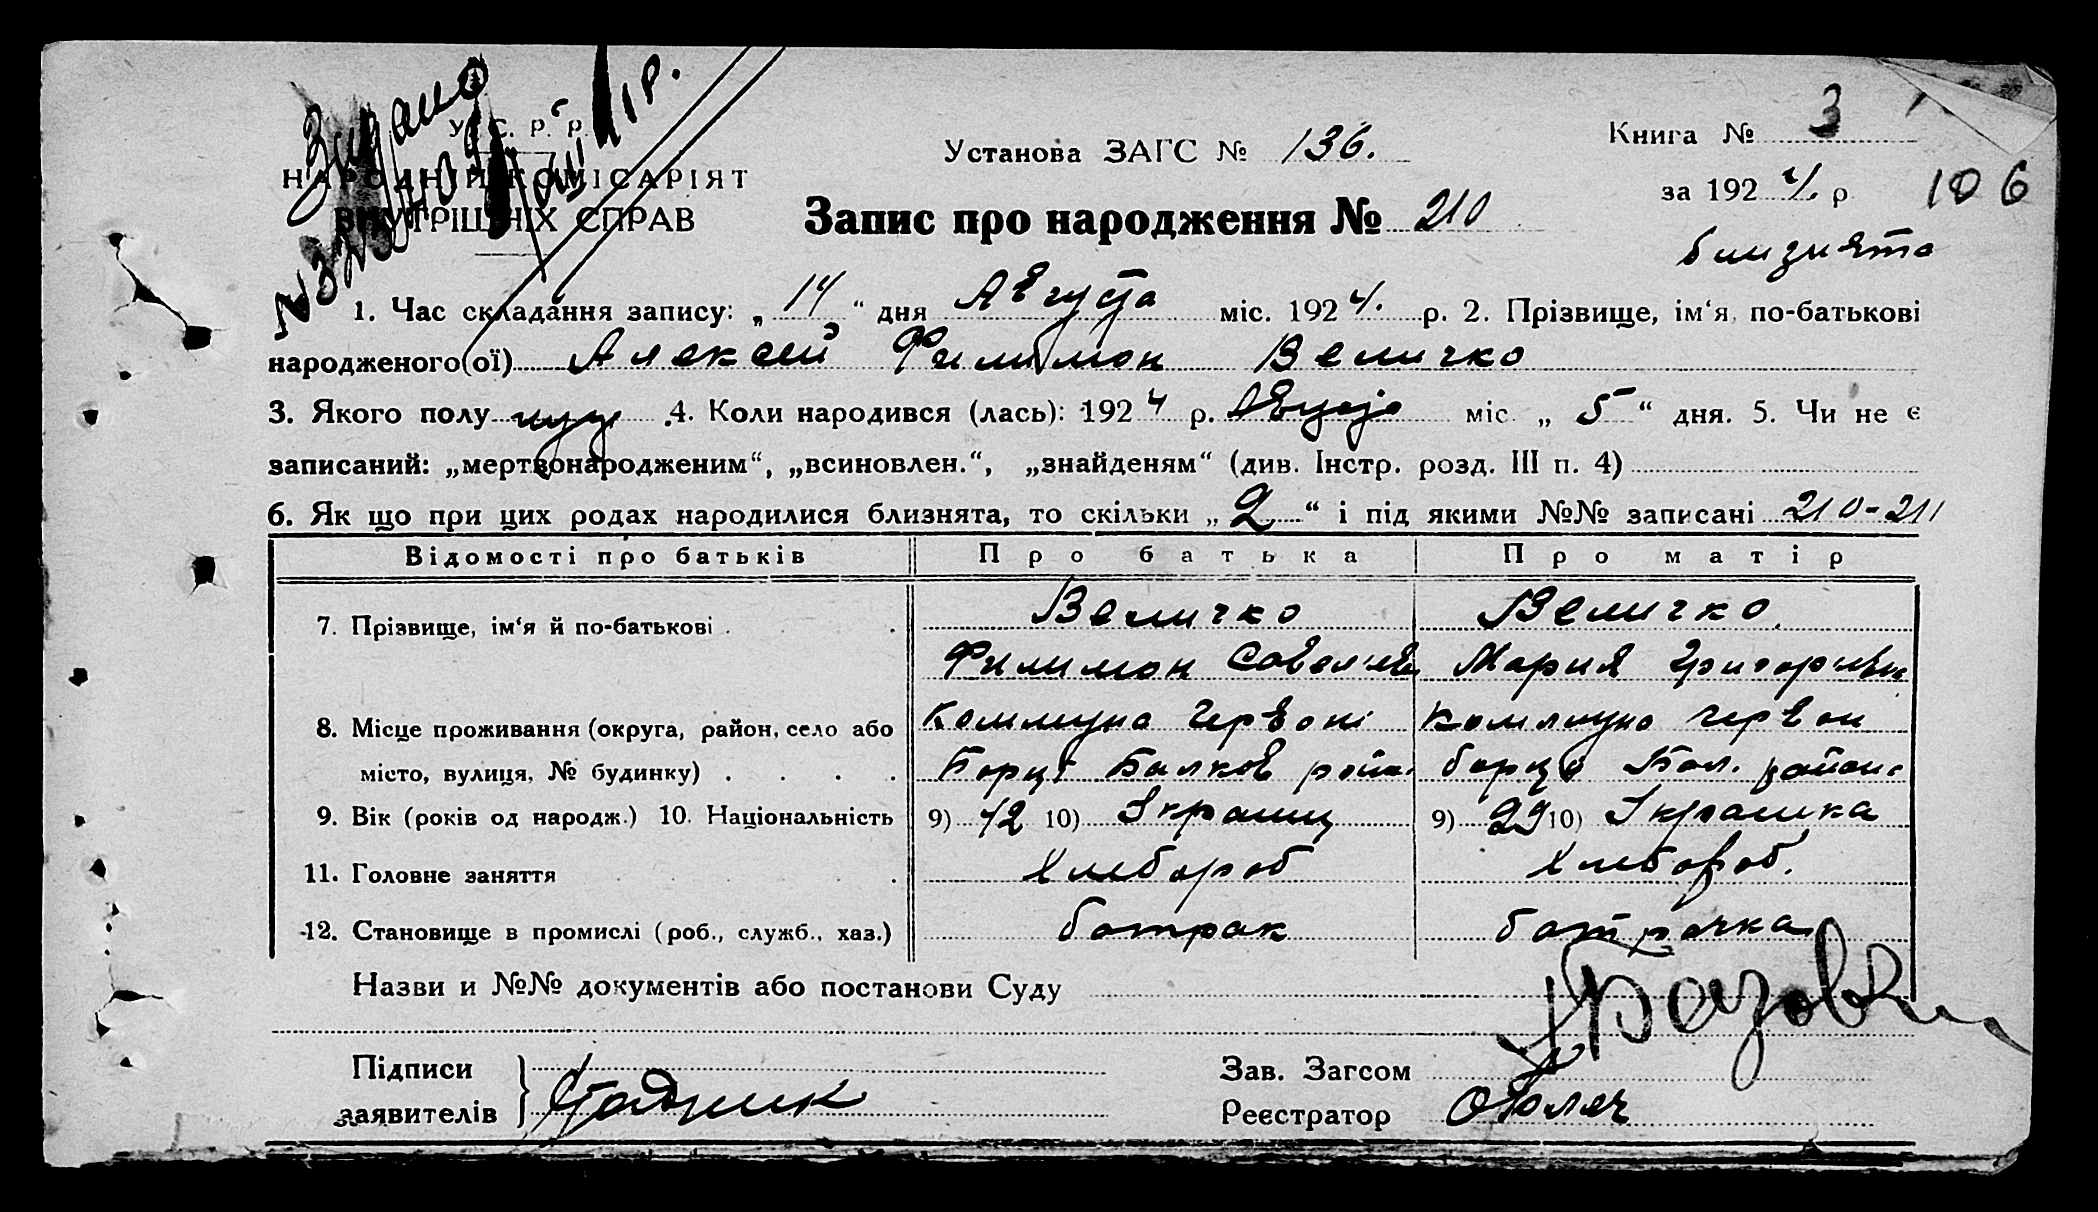 У. С. Р. Р.
НАРОДНІЙ КОМІСАРІЯТ
ВНУТРІШНІХ СПРАВ
Установа ЗАГС № 136.
Книга № 3
за 1924 р
106
Запис про народження № 210
близнята
1. Час складання запису: „ 14 “ дня Августа міс. 1924. р. 2. Прізвище, ім‘я, по-батькові
народженого(ої) Алексей Филимон Величко
3. Якого полу муж .4. Коли народився (лась): 1924 р. Августа міс. „ 5 “ дня. 5. Чи не є
записаний: „мертвонародженим“, „всиновлен.“, „знайденям“ (див. Інстр. розд. III п. 4)
6. Як що при цих родах народилися близнята, то скільки „ 2 “ і під якими №№ записані 210-211
Відомості про батьків Про батька Про матір
7. Прізвище, ім‘я й по-батькові . . Величко Величко.
Филимон Мария
8. Місце проживання (округа, район, село або Коммуна Червоні Коммуна червон
місто, вулиця, № будинку) . . . . Борці Балков район. борці Бал. района
9. Вік (років од народж.) 10. Національність 9) 42 10) Украинц 9) 29 10) Украинка
11. Головне заняття . Хлебороб Хлебороб.
12. Становище в промислі (роб., служб., хаз.) батрак батрачка
Назви и №№ документів або постанови Суду
Підписи
заявителів
Зав. Загсом
Реєстратор